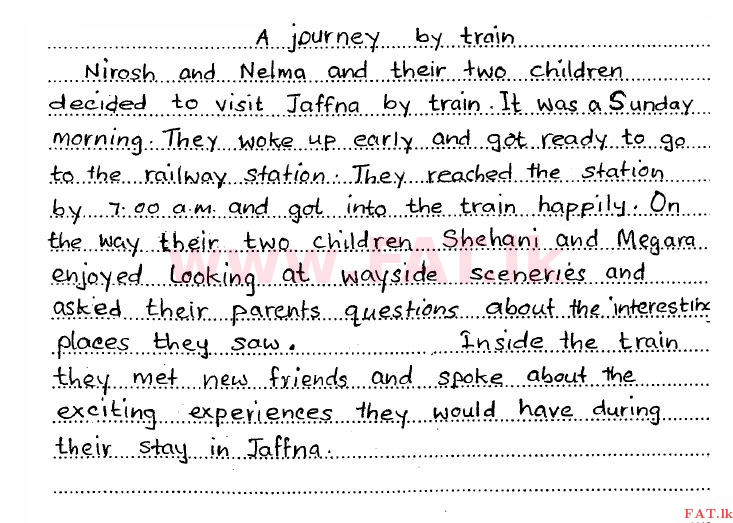 A journey by train
Nirosh and Nelma and their two children
decided to visit Jaffna by train. It was a Sunday
morning. They woke up early and got ready to go
to the railway station. They reached the station
by 7.00 a.m. and got into the train happily. On
the way their two children Shehani and Megara
enjoyed looking at wayside sceneries and
asked their parents questions about the interesting
places they saw. Inside the train
they met new friends and spoke about the
exciting experiences they would have during
their stay in Jaffna.
www.FAT.lk
FAT.lk